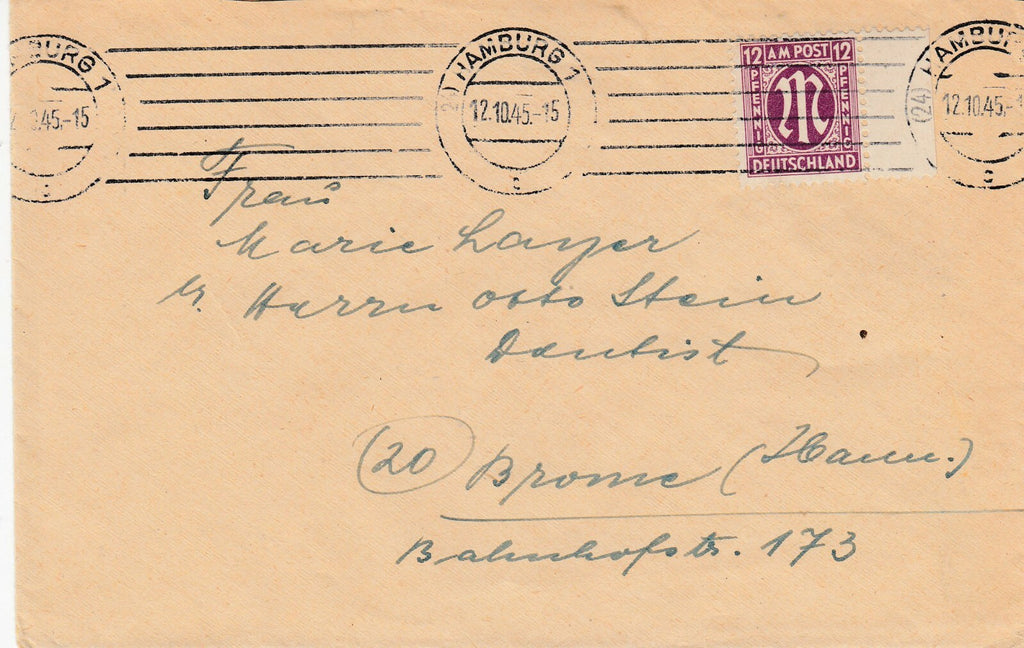 BURG 1
.45.-15
(24) HAMBURG 1
12.10.45.-15
c
12 AM POST 12
PFENNIG
PFENNIG
M
DEUTSCHLAND
(24) HAMBURG
12.10.45.-
c
Frau
Marie Layer
Herrn Otto Stein
Dentist
(20) Brome (Hann.)
Bahnhofstr. 173